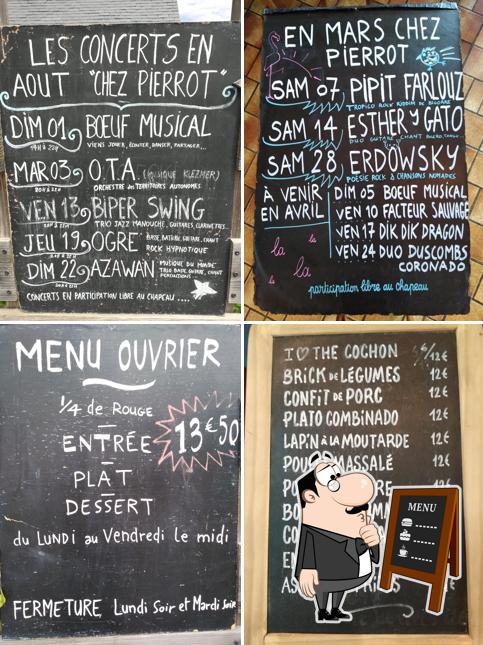 LES CONCERTS EN
AOUT "CHEZ PIERROT"
DIM 01 BOEUF MUSICAL
19H à 22H VIENS JOUER, ECOUTER, DANSER, PARTAGER...
MAR 03 O.T.A. (MUSIQUE KLEZMER)
20H à 22H ORCHESTRE des TERRITOIRES AUTONOMES
VEN 13 BIPER SWING
TRIO JAZZ MANOUCHE, GUITARES, CLARINETTE...
JEU 19 OGRE BASSE, BATTERIE, GUITARE, CHANT
ROCK HYPNOTIQUE
DIM 22 AZAWAN MUSIQUE DU MONDE
TRIO BASSE, GUITARE, CHANT
PERCUSSIONS
CONCERTS EN PARTICIPATION LIBRE AU CHAPEAU ....
EN MARS CHEZ
PIERROT
SAM 07 PIPIT FARLOUZ
TROPICO ROCK RIDDIM DE BIGORRE
SAM 14 ESTHER y GATO
DUO GUITARE CHANT
SAM 28 ERDOWSKY
POÉSIE ROCK & CHANSONS NOMADES
À VENIR
EN AVRIL
DIM 05 BOEUF MUSICAL
VEN 10 FACTEUR SAUVAGE
VEN 17 DIK DIK DRAGON
VEN 24 DUO DUSCOMBS
CORONADO
la la
la
participation libre au chapeau
MENU OUVRIER
1/4 de ROUGE
ENTRÉE
PLAT
DESSERT
13€50
du LUNDI au Vendredi le midi
FERMETURE Lundi Soir et Mardi Soir
I ♡ THE COCHON 12€
BRiCK de LÉGUMES 12€
CONFiT de PORC 12€
PLATO COMBiNADO 12€
LAPiN à la MOUTARDE 12€
MASSALÉ 12€
MENU